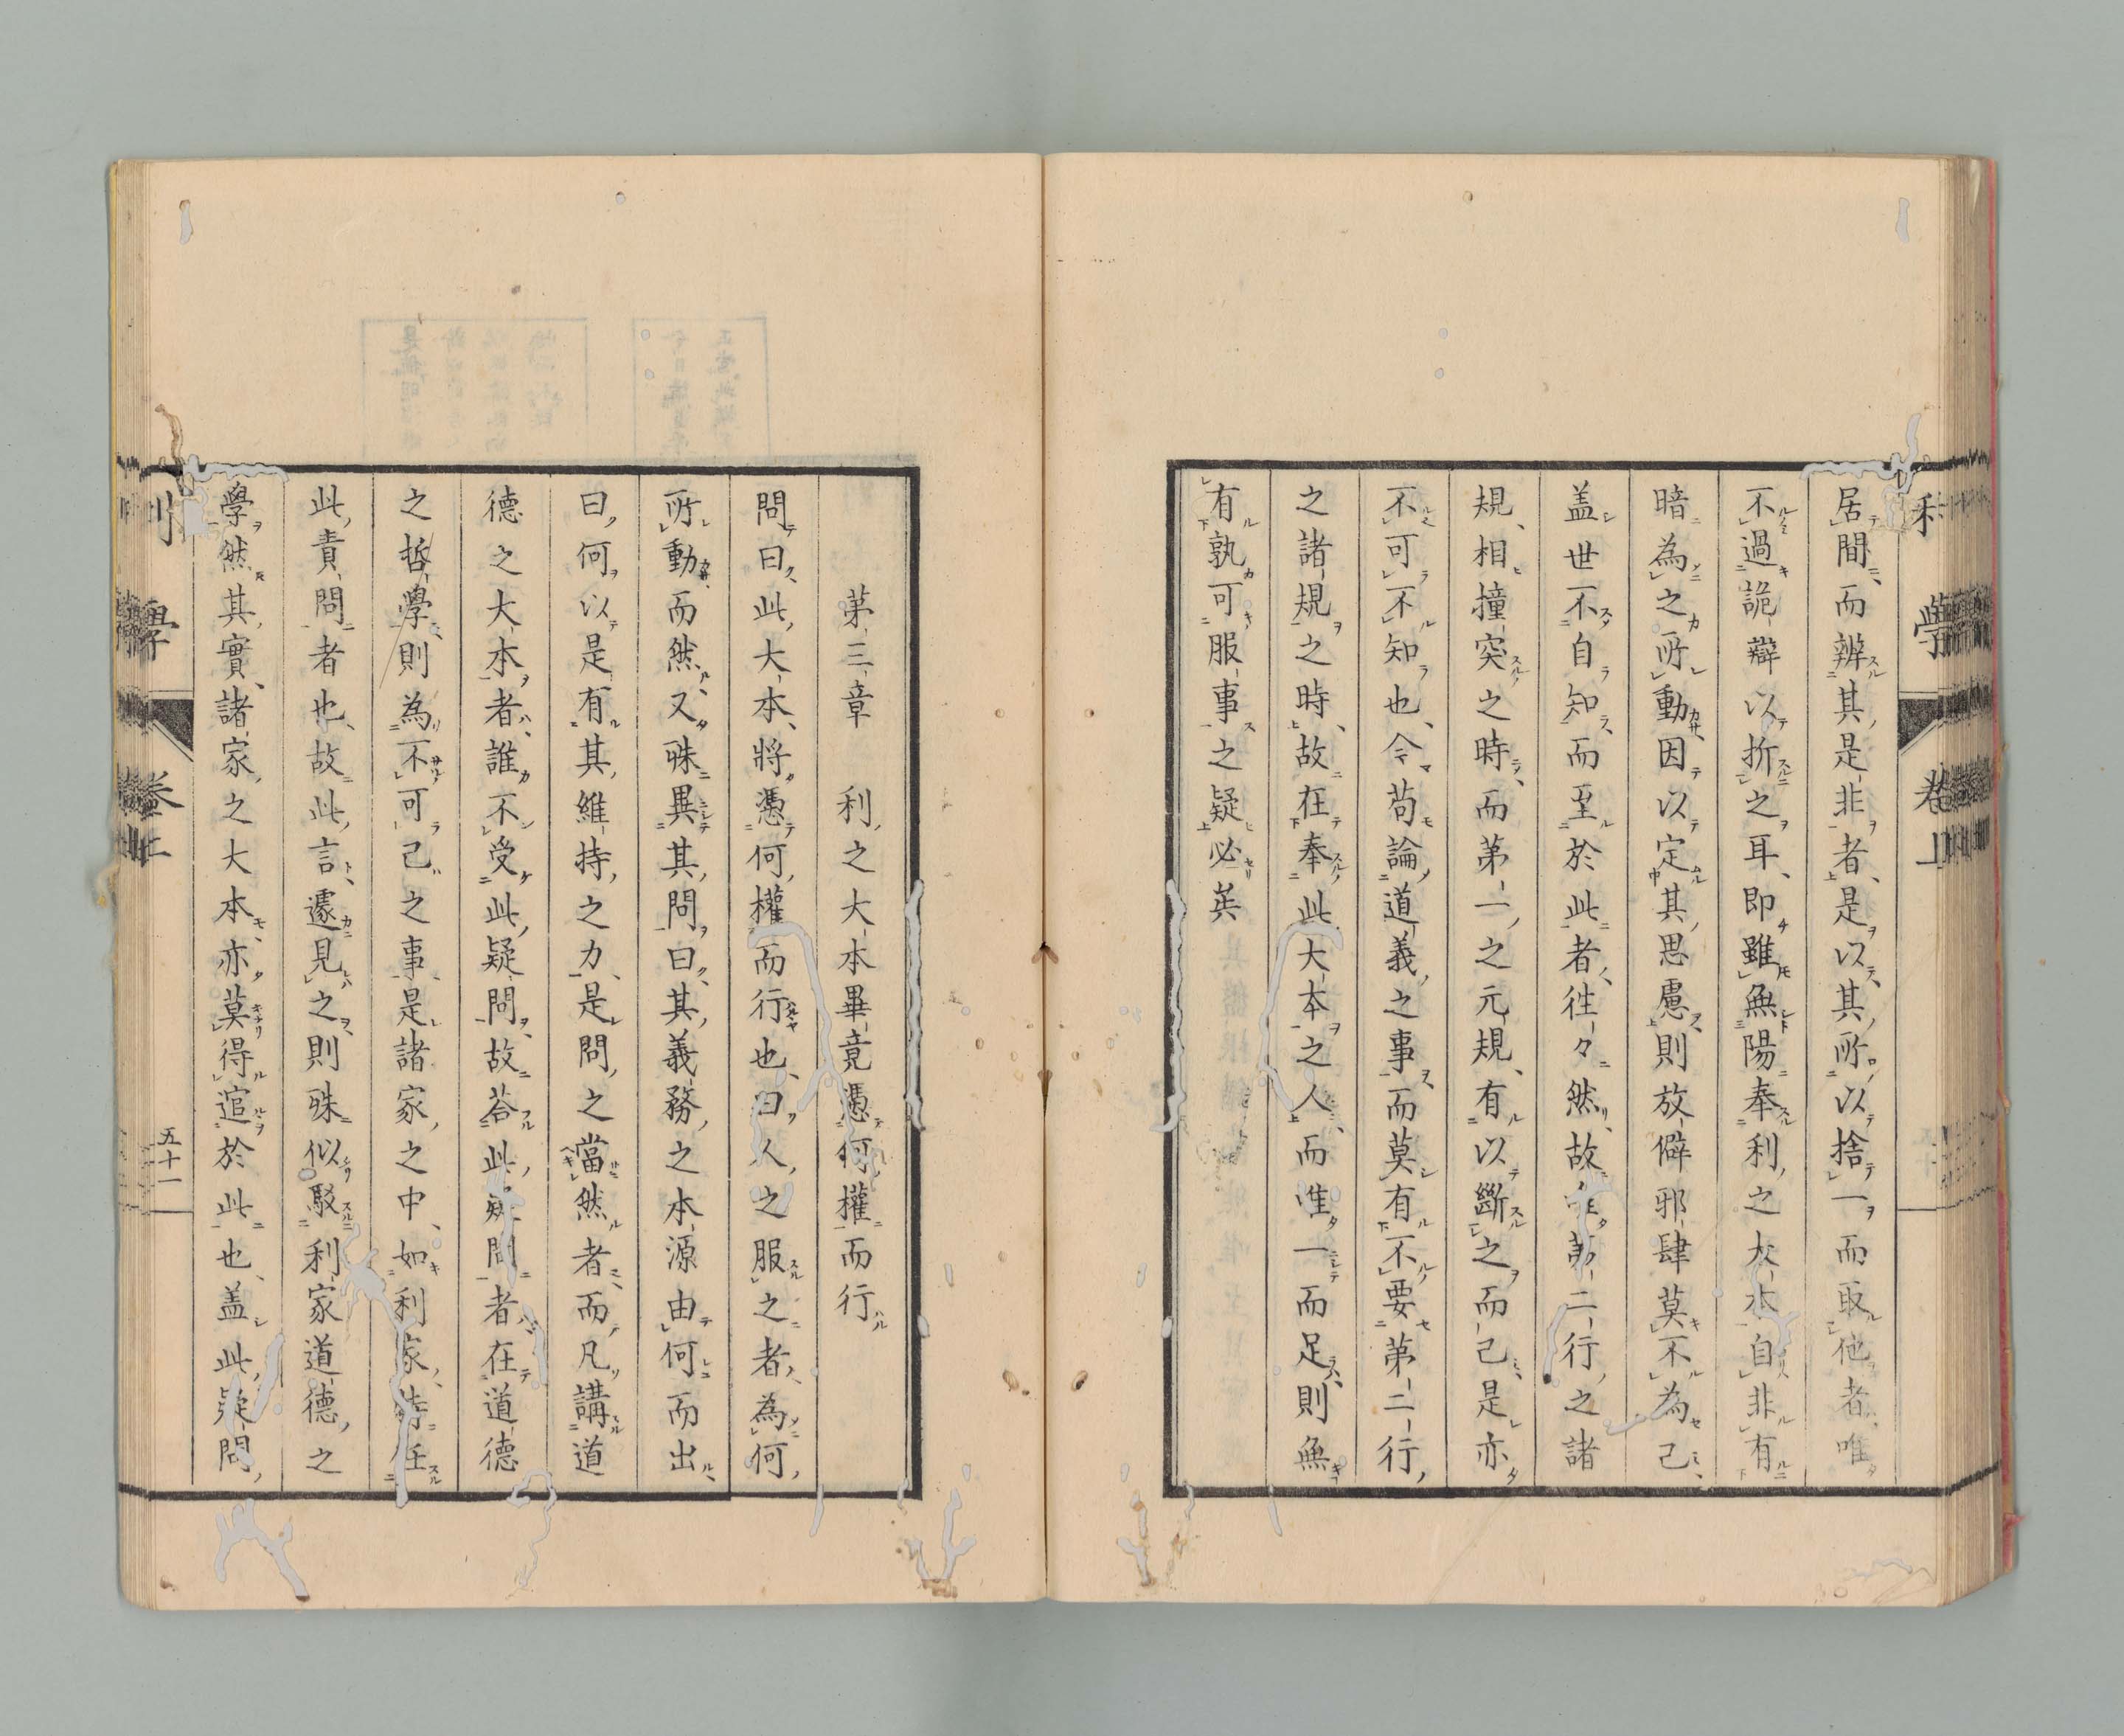 居間而辨其是非者是以其所以捨一而取他者唯
不過詭辯以折之耳即雖無陽奉利之大本自非有
暗為之所動因以定其思慮則放僻邪肆莫不為己
盖世不自知而至於此者徃々然故唯第二行之諸
規相撞突之時而第一之元規有以斷之而己是亦
不可不知也今苟論道義之事而莫有不要第二行
之諸規之時故在奉此大本之人而唯一而足則無
有孰可服事之疑必矣
第三章 利之大本畢竟憑何權而行
問曰此大本將憑何權而行也曰人之服之者為何
所動而然又殊異其問曰其義務之本源由何而出
曰何以是有其維持之力是問之當然者而凡講道
德之大本者誰不受此疑問故荅此疑問者在道德
之哲學則為不可己之事是諸家之中如利家特任
此責問者也故此言遽見之則殊似駁利家道德之
學然其實諸家之大本亦莫得逭於此也盖此疑問
利學 卷上 五十一